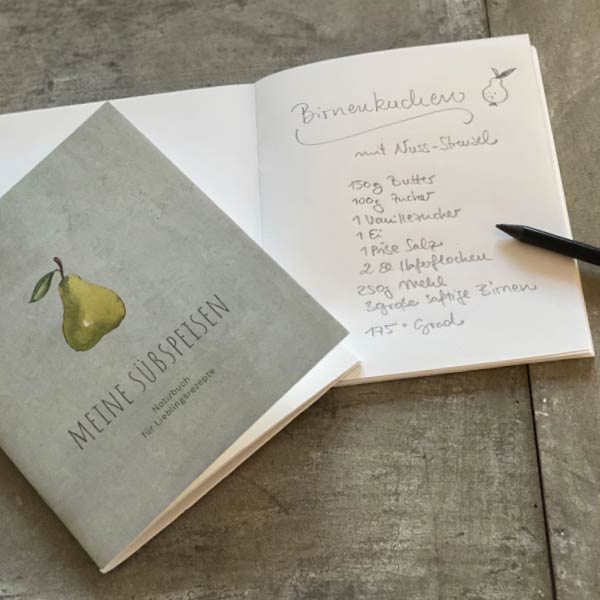 MEINE SÜßSPEISEN
Notizbuch
für Lieblingsrezepte
Birnenkuchen
mit Nuss-Streusel
150g Butter
100g Zucker
1 Vanillezucker
1 Ei
1 Prise Salz
2 El Haferflocken
250g Mehl
3 große saftige Birnen
175° Grad